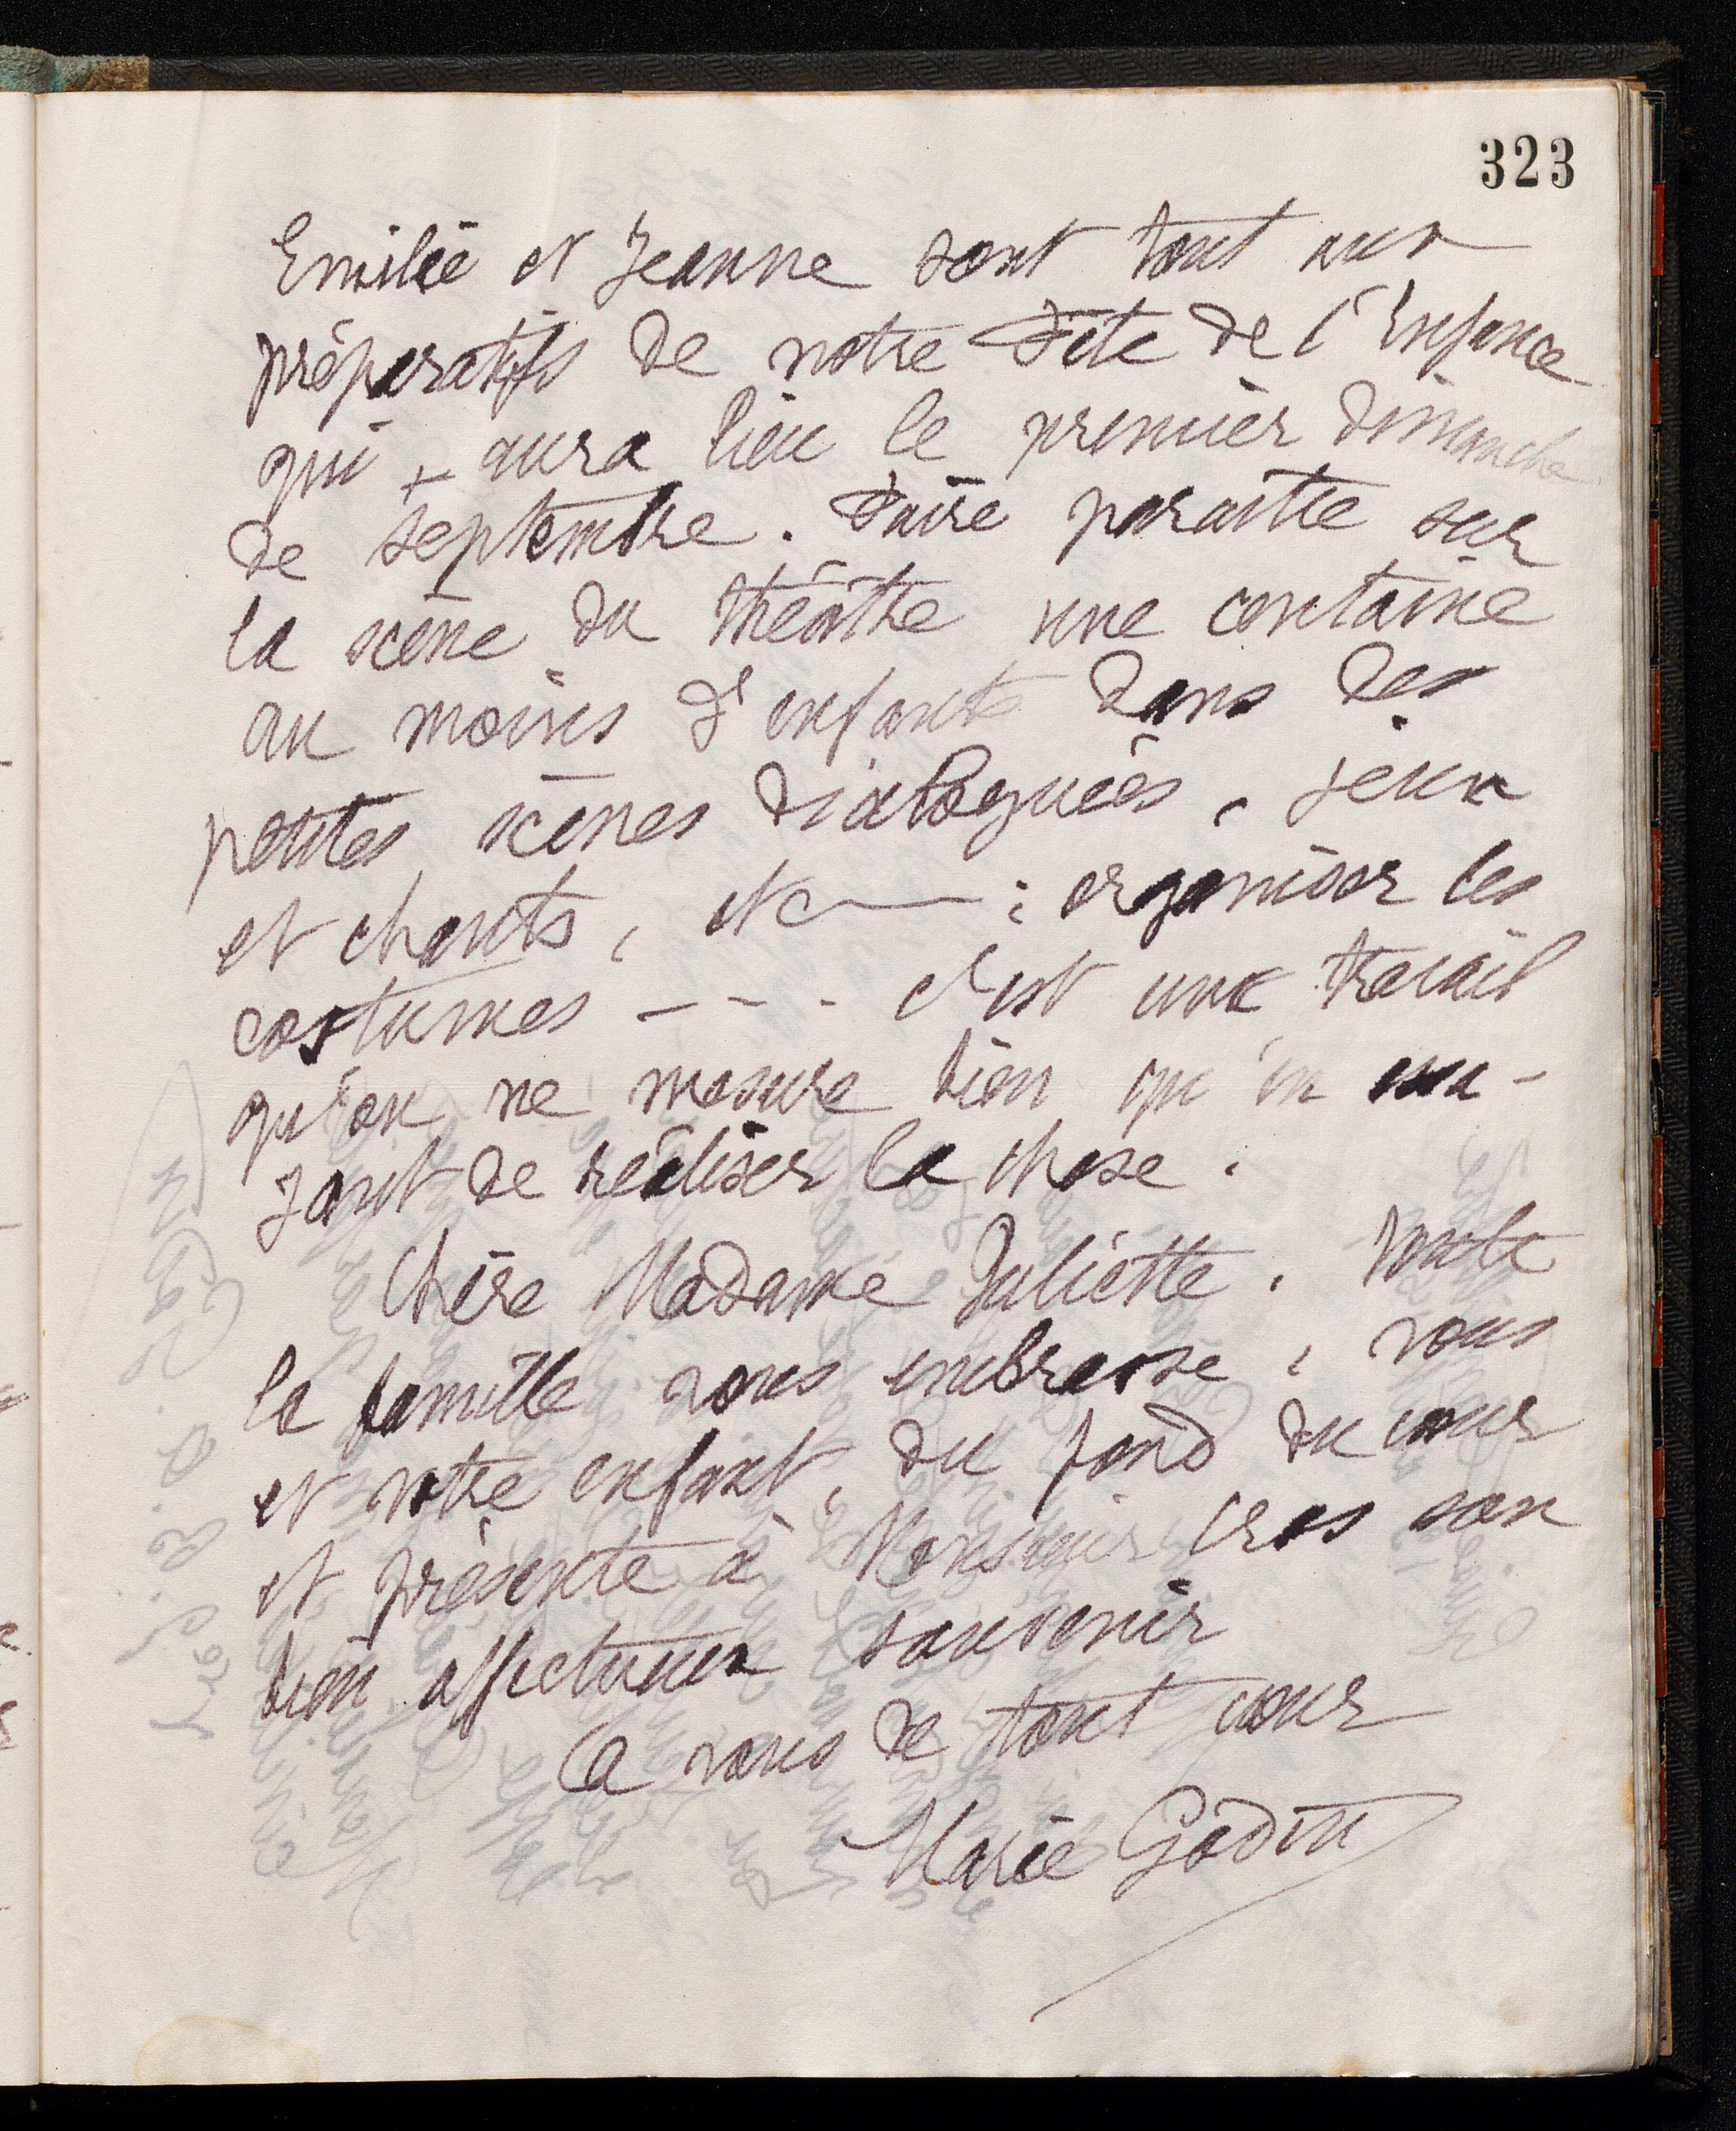 323
Emilie et Jeanne sont tout aux
préparatifs de notre Fête de l'Enfance
qui aura lieu le premier dimanche
de septembre. Faire paraître sur
la scène du théâtre une centaine
au moins d'enfants dans des
petites scènes dialoguées, jeux
et chants, etc ; organiser les
costumes - - - c'est une travail
qu'on ne mesure bien qu'en
de réaliser la chose.
Chère Madame Juliette, toute
la famille vous embrasse, vous
et votre enfant, du fond du cœur
et présente à Monsieur Cros son
bien affectueux souvenir
A vous de tout cœur
Marie Godin